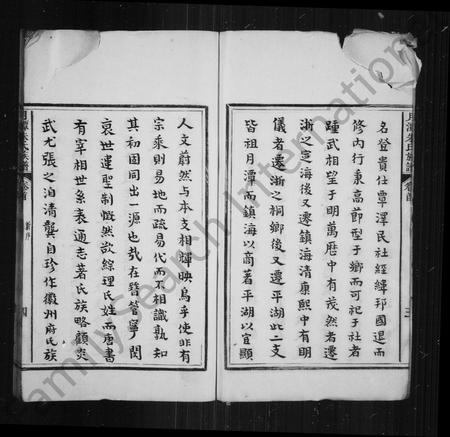 月潭朱氏族譜 卷首
三
名登貴仕覃澤民社經緯邦國退而
修內行秉高節型于鄉而可祀于社者
踵武相望于明萬曆中有茂然者遷
浙以定海後又遷鎮海清康熙中有明
儀者遷浙之桐鄉後又遷平湖此二支
皆祖月潭而鎮海以商著平湖以宦顯
人文蔚然與本支相輝映烏乎使非有
宗乘則易地而疏易代而不相識孰知
其初固同出一源也哉在昔管寧閔
衰世運聖制慨然欲綜理氏姓而唐書
有宰相世系表通志著氏族略顧炎
武尤張之洎清龔自珍作徽州府氏族
新序
四
FamilySearch International